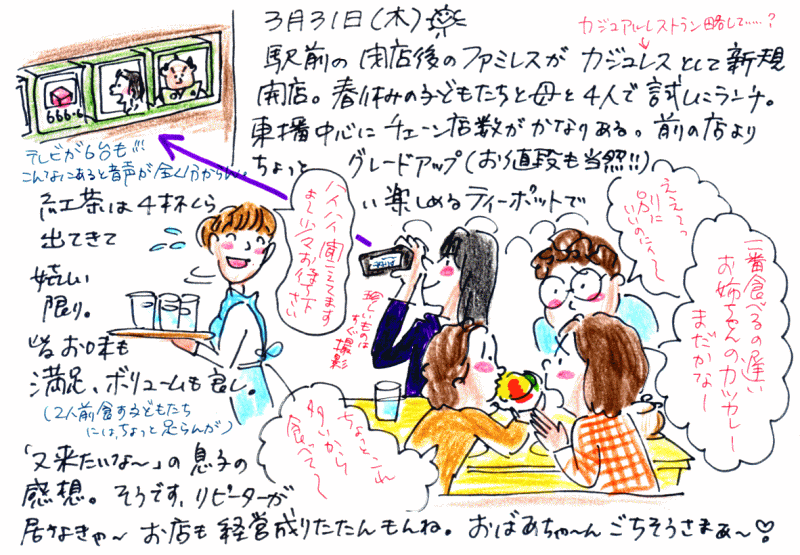 3月31日(木)
カジュアルレストラン略して……?
駅前の閉店後のファミレスがカジュレスとして新規
開店。春休みの子どもたちと母と4人で試しにランチ。
東播中心にチェーン店数がかなりある。前の店より
ちょっと グレードアップ(お値段も当然!!)
666.
テレビが6台も!!!
こんなにあると音声が全く分からん。
紅茶は4杯くら
い楽しめるティーポットで
出てきて
嬉しい
限り。
お味も
満足、ボリュームも良し。
(2人前食す子どもたち
にはちょっと足らんが)
ハイハイ聞こえてます
よ〜少々お待ち下
さい
珍しいものは
すぐ撮影
ええっっ
別に
いいのにん〜
一番食べるの遅い
お姉ちゃんのカツカレー
まだかなー
ちょっとこれ
多いから
食べて〜
「又来たいな〜」の息子の
感想。そうです、リピーターが
居なきゃ〜お店も経営成りたたんもんね。おばあちゃ〜んごちそうさまぁ〜♡